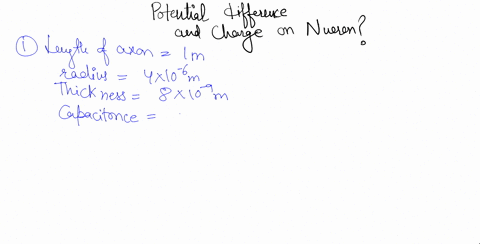 Potential difference
and Charge on Nueron?
① Length of axon = 1m
radius = 4×10⁻⁶m
Thickness = 8×10⁻⁹m
Capacitonce =